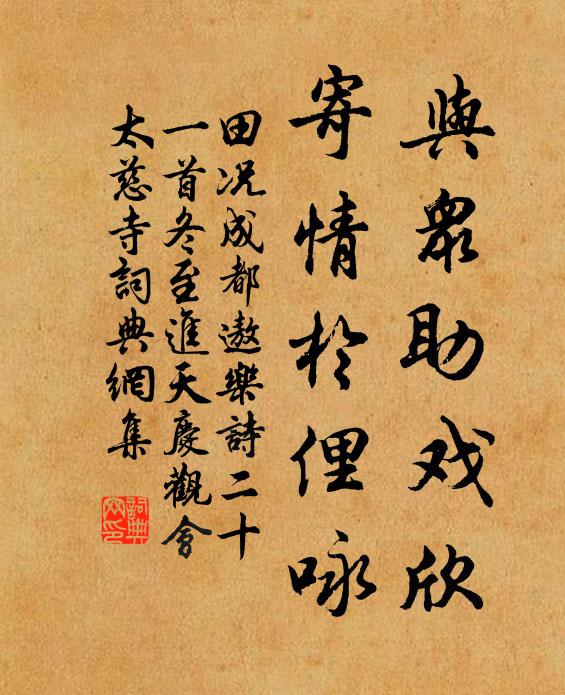 與眾助戏欣
寄情於俚咏
田况成都遨樂詩二十
一首冬至進天慶觀會
太慈寺詞典網集
詞典
网印